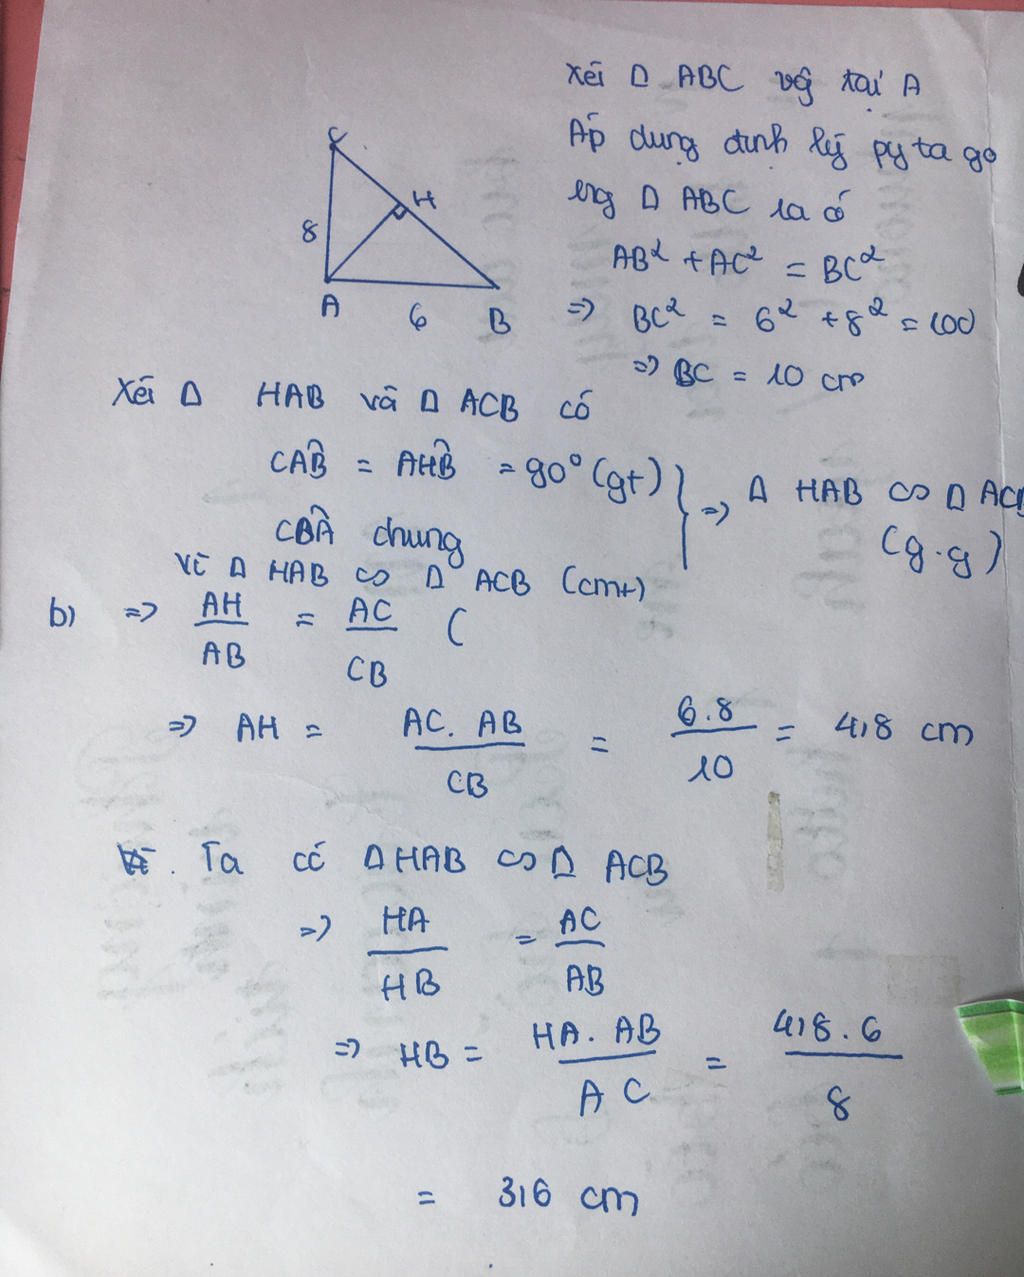 Xét Δ ABC vg tại A
Áp dụng định lý pytago
trg Δ ABC ta có
AB² + AC² = BC²
=> BC² = 6² + 8² = 100
=> BC = 10 cm
C
H
8
A
6
B
Xét Δ HAB và Δ ACB có
CAB̂ = AHB̂ = 90° (gt)
CBÂ chung
} => Δ HAB ∽ Δ ACB
(g.g)
Vì Δ HAB ∽ Δ ACB (cmt)
b) => AH/AB = AC/CB (
=> AH = AC. AB/CB = 6.8/10 = 4,8 cm
. Ta có ΔHAB ∽ Δ ACB
=> HA/HB = AC/AB
=> HB = HA. AB/AC = 4,8.6/8
= 3,6 cm